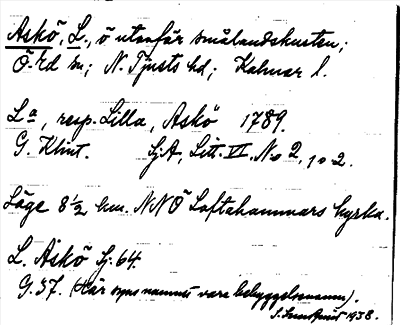 Askö, L., ö utanför smålandskusten;
Ö.-Ed sn; N. Tjusts hd; Kalmar l.
La, resp. Lilla, Askö 1789.
G. Klint. SjA, Litt. VI, No 2, 1 o 2.
Läge 8 1/2 km. NNÖ Loftahammars kyrka.
L. Askö Sj. 64.
G. 57. (Här synes namnet vara bebyggelsenamn).
1938.